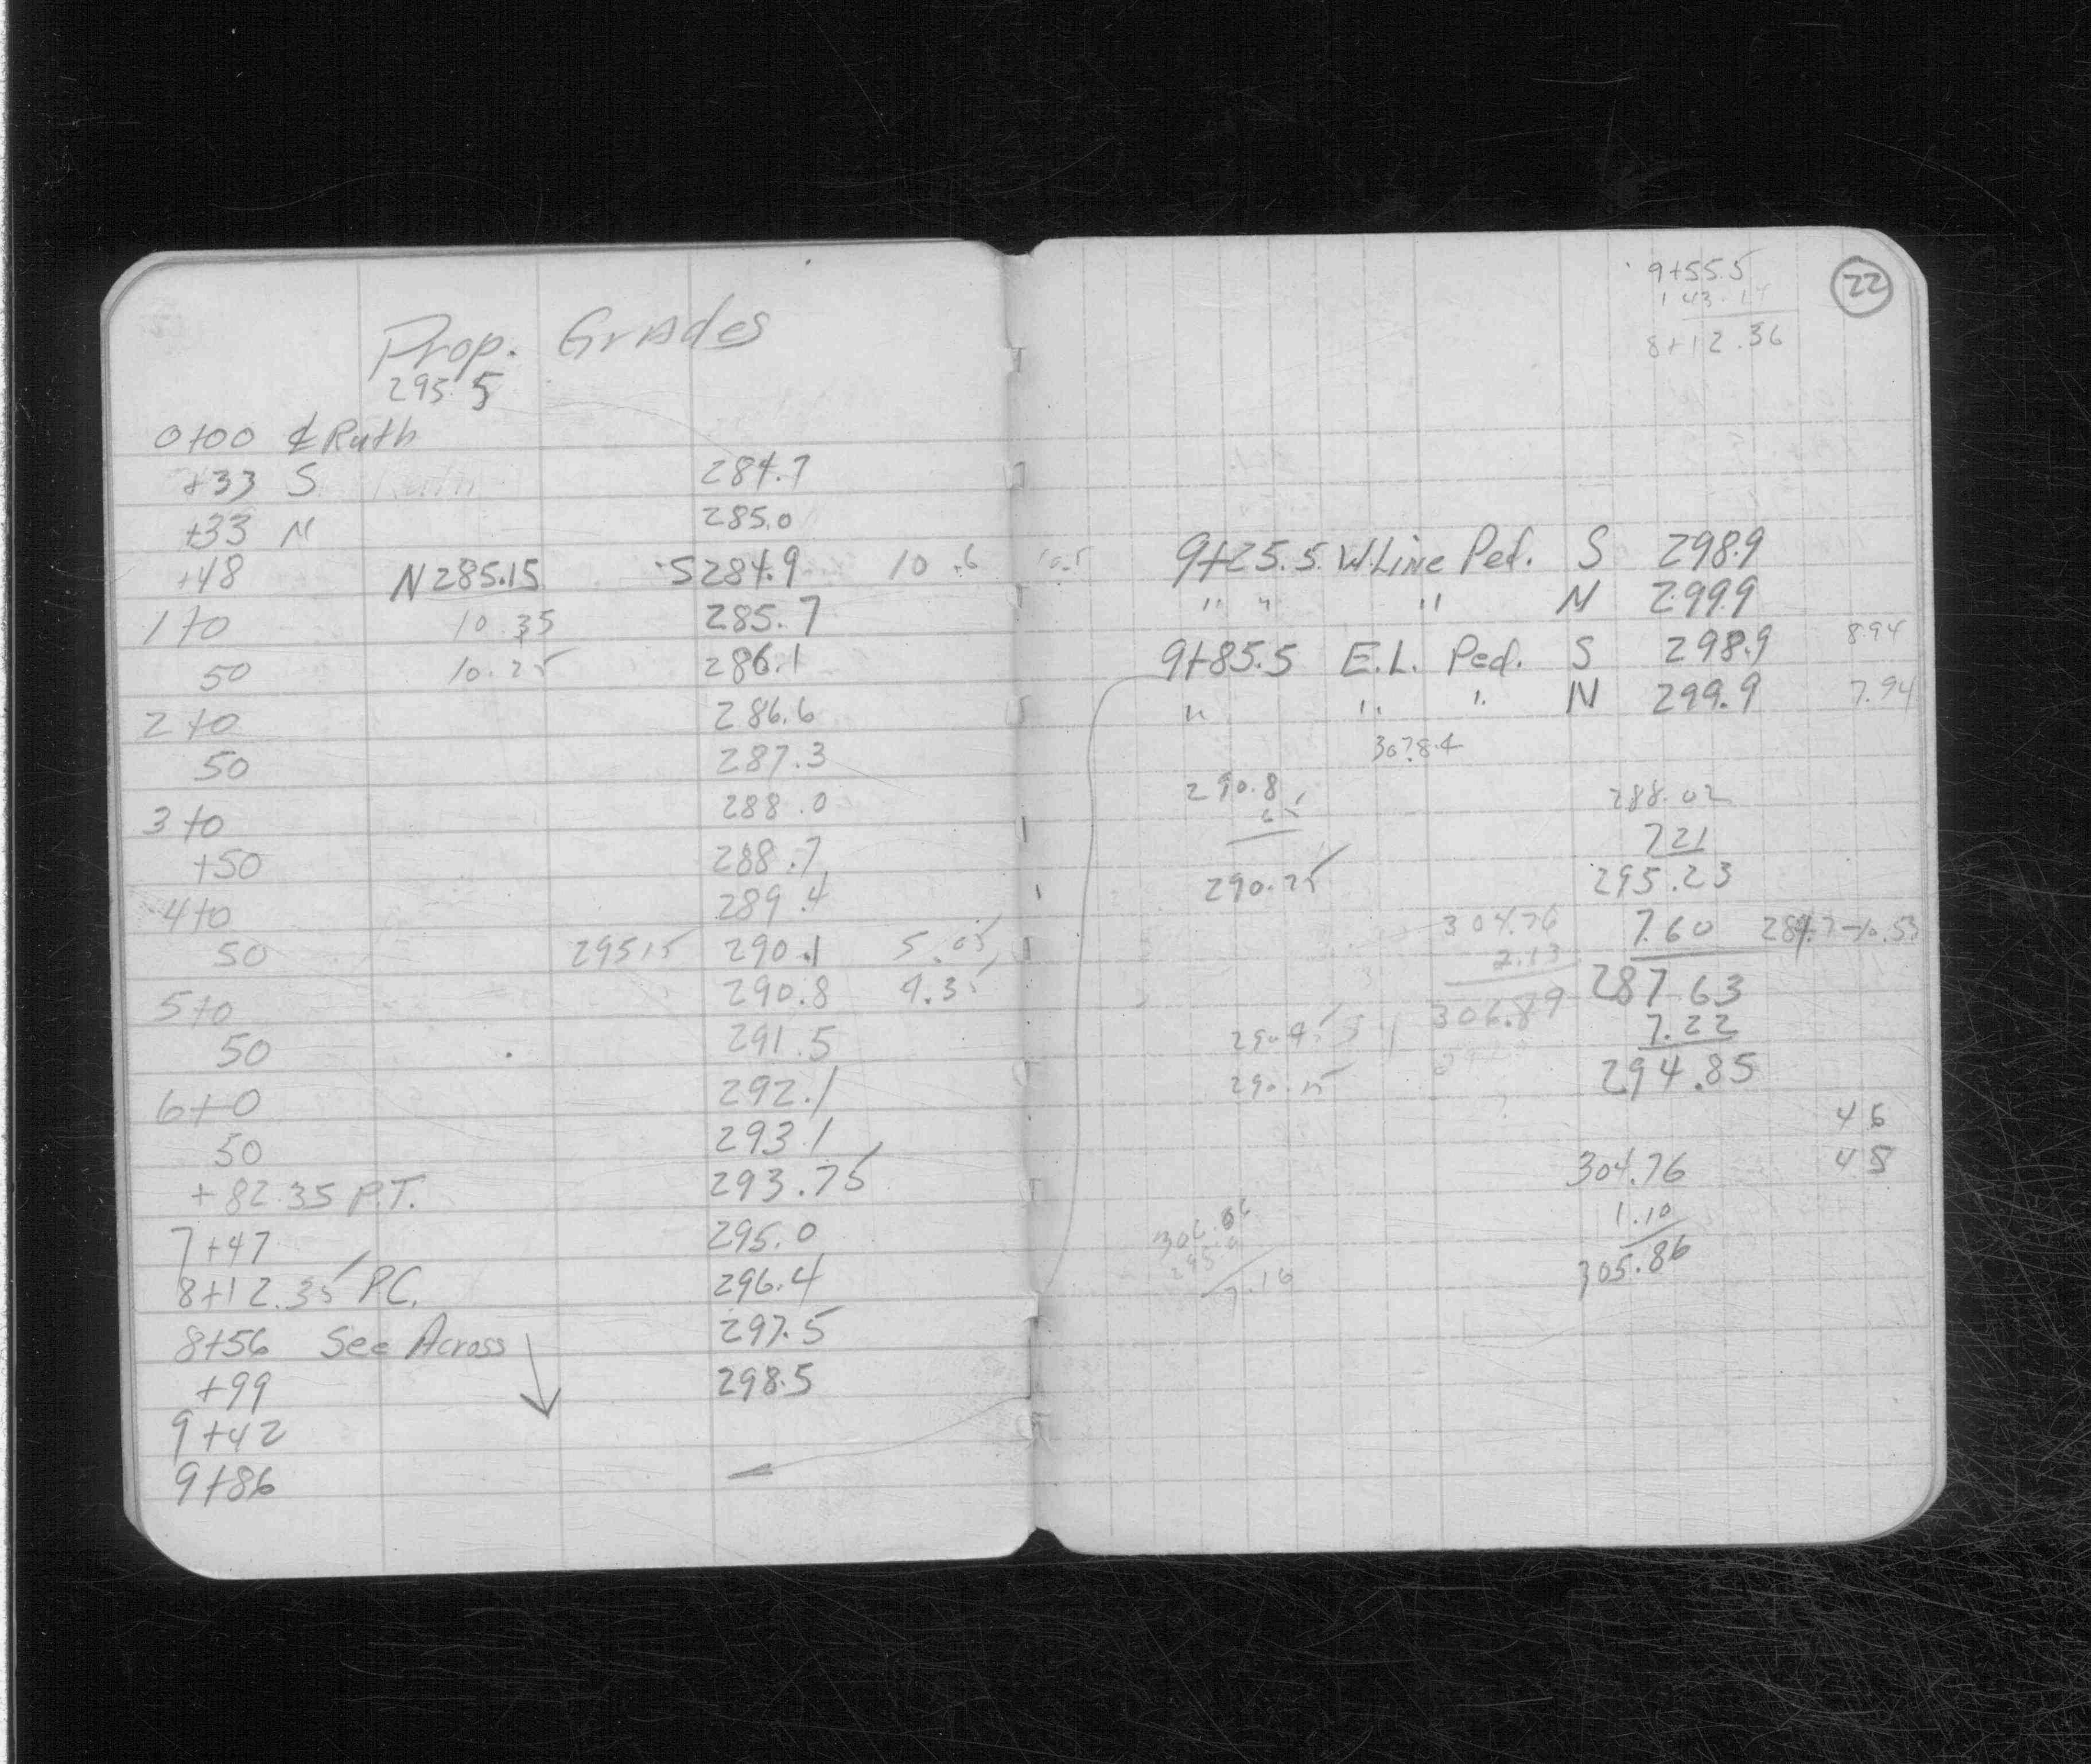 Prop. Grades
295.5
0+00 ℄ Ruth
+33 S 284.7
+33 N 285.0
+48 N 285.15 S 284.9 10.6
1+0 10.35 285.7
50 10.25 286.1
2+0 286.6
50 287.3
3+0 288.0
+50 288.7
4+0 289.4
50 295.15 290.1 5.05
5+0 290.8 4.35
50 291.5
6+0 292.1
50 293.1
+82.35 P.T. 293.75
7+47 295.0
8+12.35 P.C. 296.4
8+56 See Across 297.5
+99 298.5
9+42
9+86
22
9+55.5
1 43.14
8+12.36
10.5
9+25.5 W. Line Ped. S 298.9
" " " N 299.9
9+85.5 E.L. Ped. S 298.9 8.94
" " " N 299.9 7.94
307.84
290.8
290.25
288.02
7.21
295.23
7.60 284.7-10.53
287.63
7.22
294.85
304.76
2.13
306.89
290.25
46
48
304.76
1.10
305.86